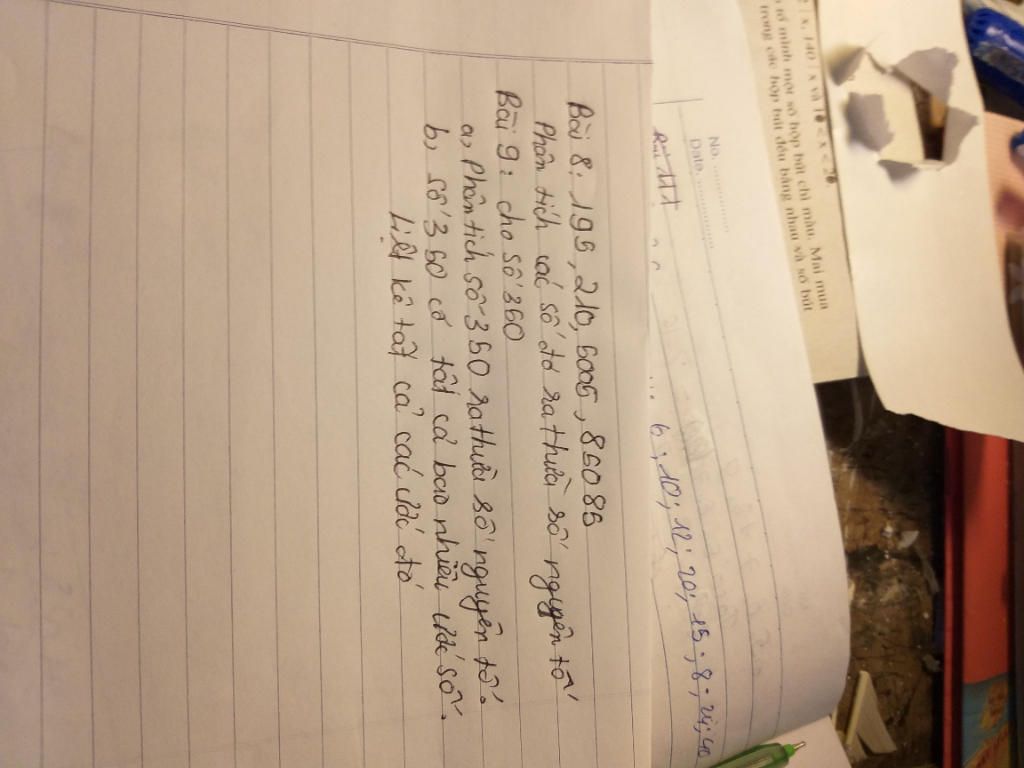 : x, 140 : x và 10 < x < 20.
tổ mình một số hộp bút chì màu. Mai mua
trong các hộp bút đều bằng nhau và số bút
No.
Date
6; 10; 12; 20; 15; 8; 24;
Bài 8: 195, 210, 5005, 85085
Phân tích các số đó ra thừa số nguyên tố
Bài 9: cho số 360
a, Phân tích số 360 ra thừa số nguyên tố.
b, số 360 có tất cả bao nhiêu ước số.
Liệt kê tất cả các ước đó